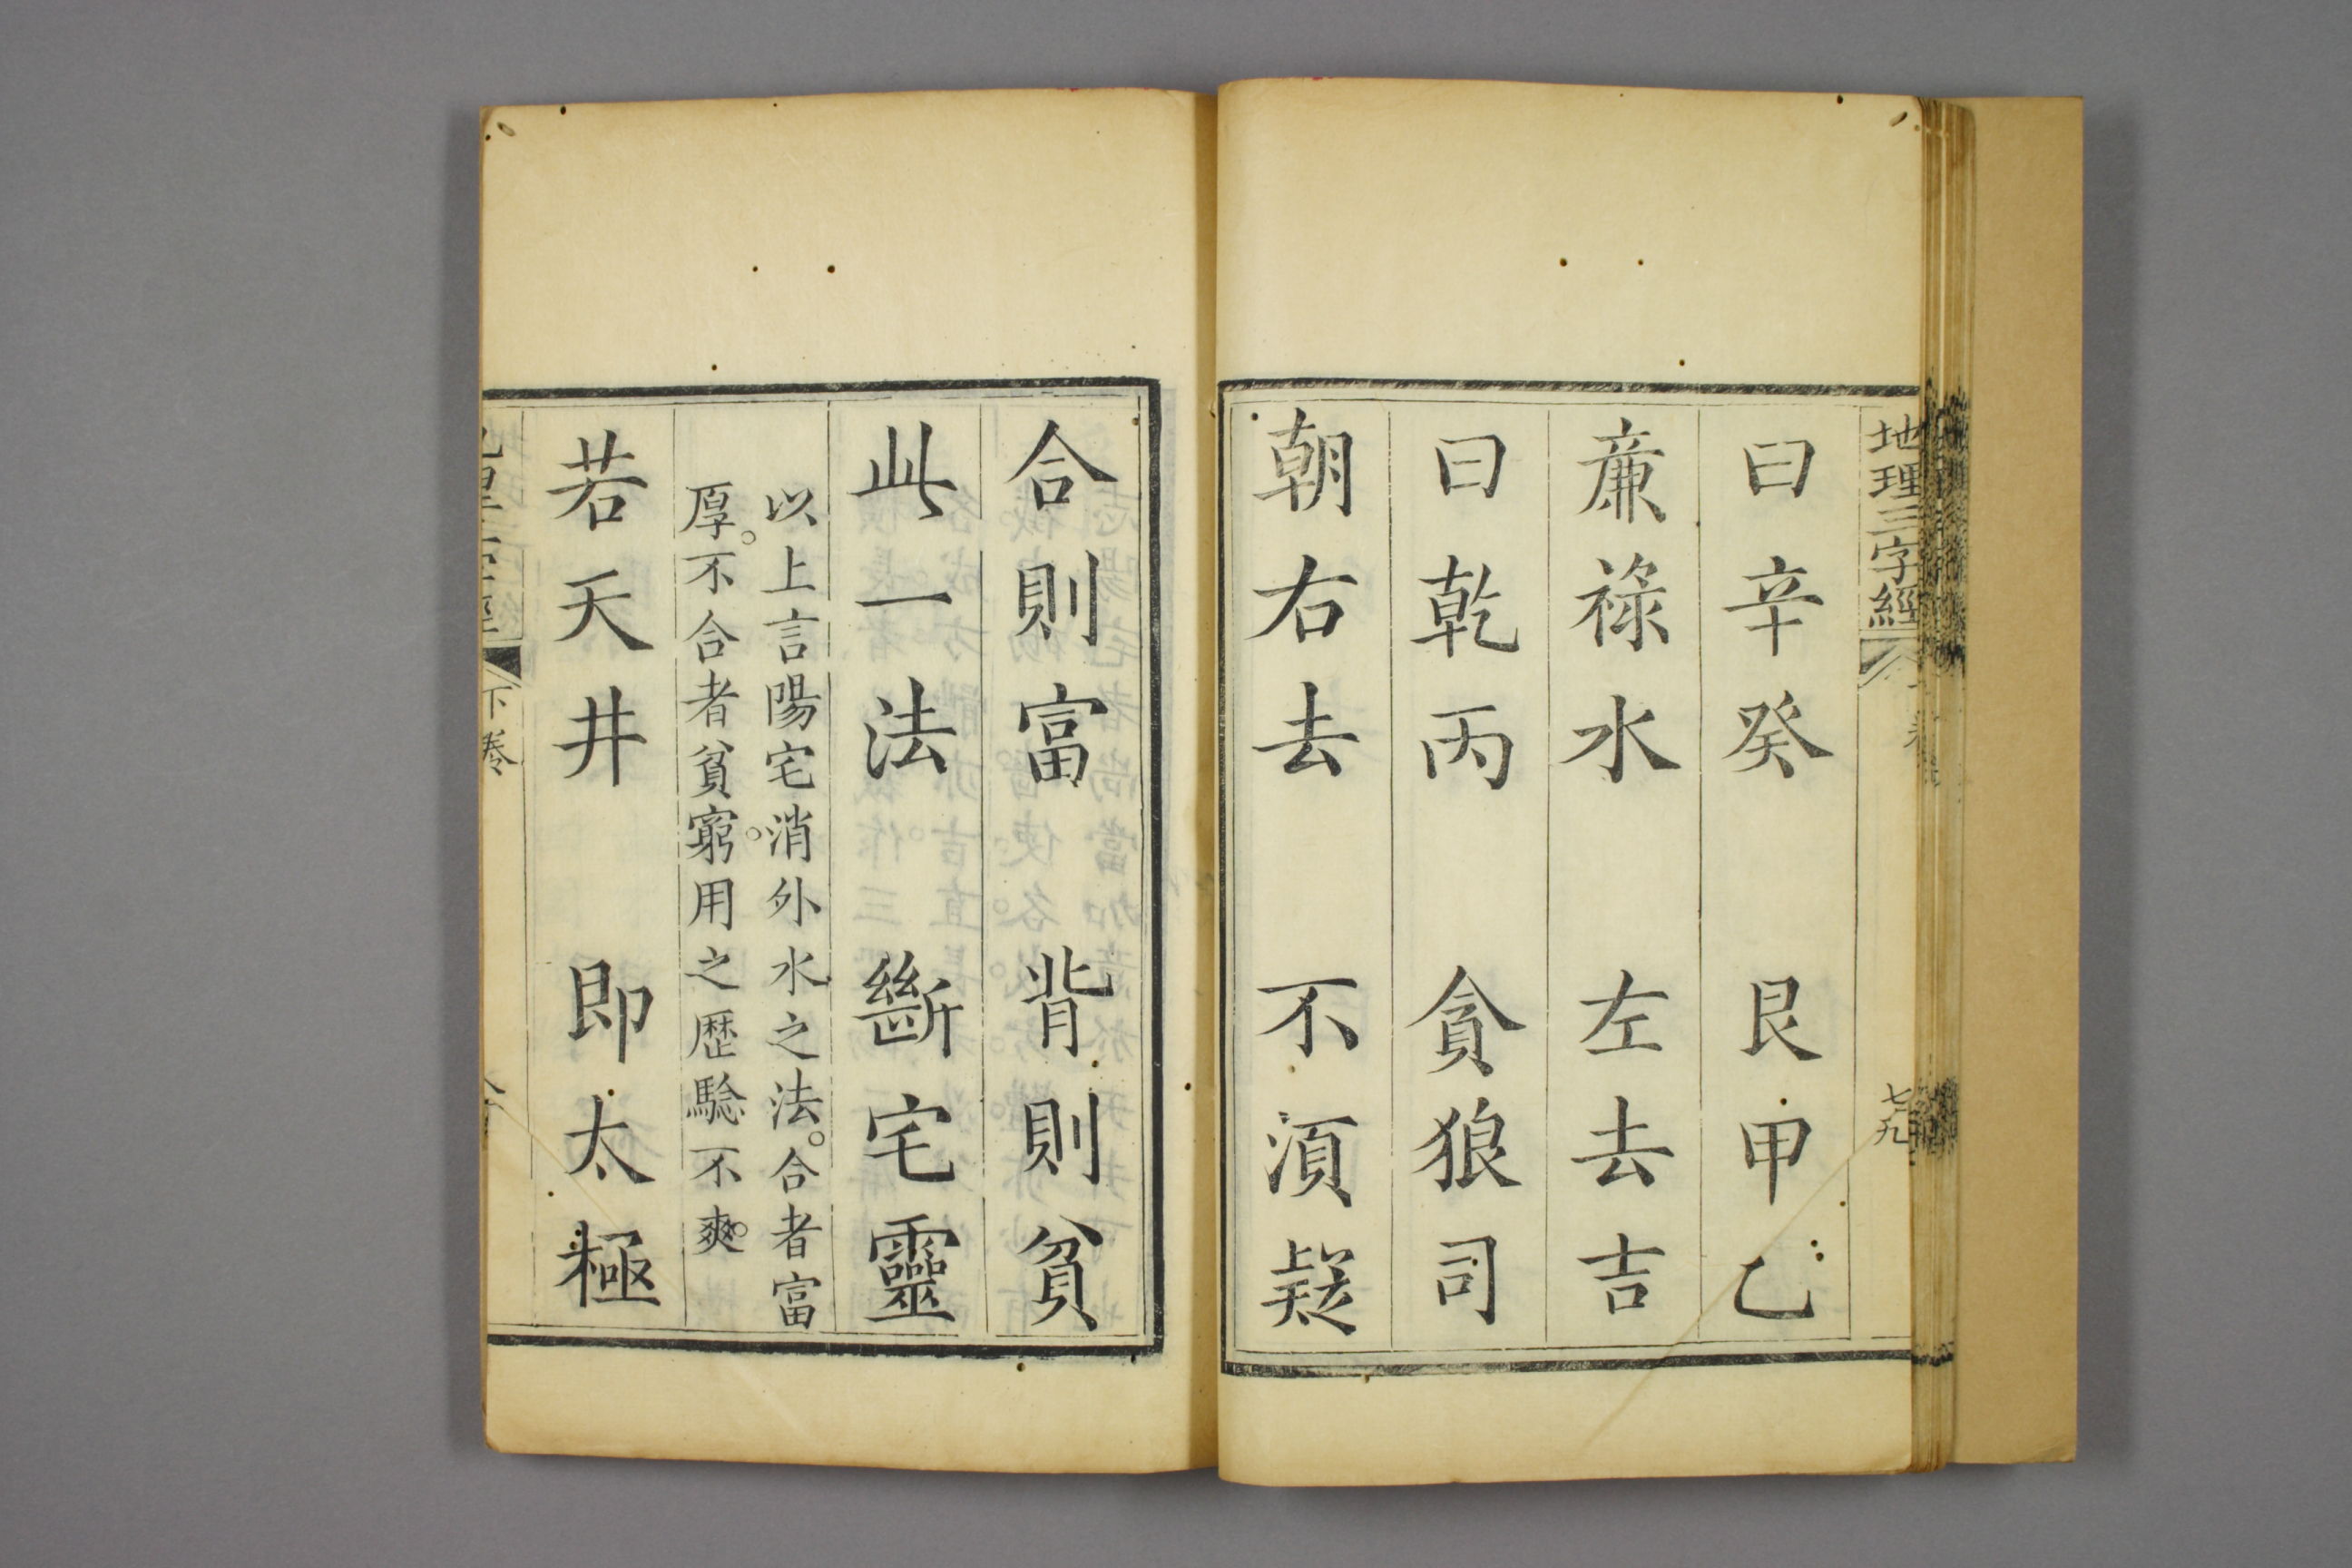 地理三字經
七九
曰辛癸 艮甲乙
廉祿水 左去吉
曰乾丙 貪狼司
朝右去 不湏疑
合則富 背則貧
此一法 斷宅靈
以上言陽宅消外水之法。合者富
厚。不合者貧窮。用之歷騐不爽。
若天井 即太極
下卷